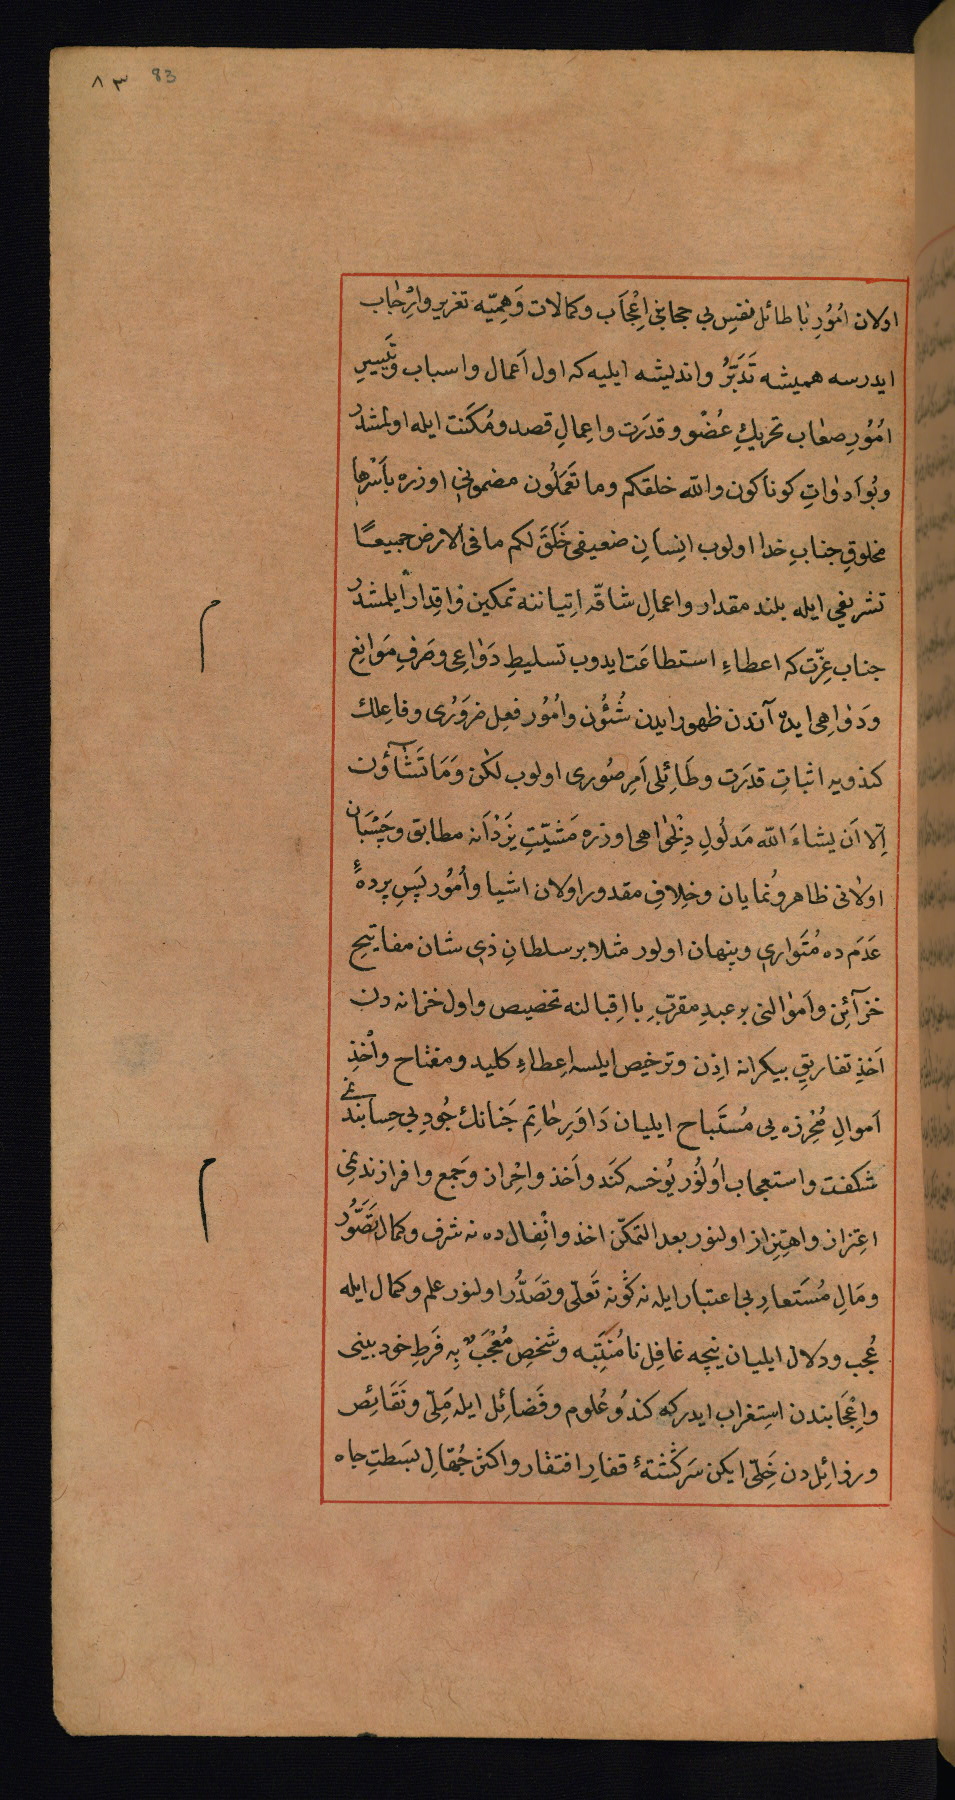 ٨٣ 83
اولان امُوُرِ باطائل نفسِ بی حجابنی اِعْجَاب و کمالات وَهِمیّه تغریر وارِْحٰاب
ایدرسه همیشه تَدَبَّرُ و اندیشه ایلیه که اول اَعمال و اسباب و تَیسیرِ
امُوُرِ صعٰاب تحریكِ عُضْو و قدرَت و اعِمالِ قصد و مُکَنت ایله اولمشدر
و بُو اَدوٰاتِ کوناکون والله خلقکم وما تَعمَلُون مضمونی اوزره باَسْرِها
مخلوقِ جنابِ خدا اولوب انِسٰانِ ضعیفی خَلَقَ لکم ما فی الارض جمیعًا
تشریفی ایله بلند مقدار و اعمالِ شاقّه اتِیاننه تمکین و اقِدار ایلمشدر
جناب عِزّت که اعطاءِ استطاعَت ایدوب تسلیطِ دَوٰاعِی و صَرفِ مَوٰانِع
و دَوٰاهی ایده آندن ظهور ایدن شُئُون و امُوُر فعِل ضرَوُری و فاعِلك
کندویه اثباتِ قدرَت و طَائِلی اَمرِ صُوری اولوب لکن وَمَا تَشَآؤن
اِلّا اَن یشاءَ الله مَدلُولِ دِلْخٰواهی اوزره مَشیّتِ یَزْدَانه مطابق و چَسْبَان
اولانی ظاهر و نُمایان و خِلافِ مقدور اولان اشیا و اُمُوُر پَسِ پردهٔ
عَدَم ده مُتَوٰاری و پنهان اولور مثلا بر سلطانِ ذی شان مفاتیحِ
خزآئِن و اَموٰالنی بر عبدِ مقرّبِ با اِقبالنه تخصیص و اول خزانه دن
اَخذِ تفاریقِ بیکرانه اذِن و ترخیص ایلسه اعِطاءِ کلید و مفتاح و اَخْذِ
اَموالِ مُخْرِزه یی مُستَباح ایلیان دَاوَرِ حٰاتِم جَنانك جُودِ بی حِسابندنمی
شکفت و استعجاب اوُلوُر یُوخسه کنَد و اَخذ و احِْراز و جَمع و افرازندنمی
اعِتزاز و اهتِزِاز اولنور بعد التمکّن اخذ و انِْفالده نه شرف و کمال تَصَوُّر
و مَالِ مُستَعارِ بی اعتبار ایله نه کُونه تَعلّی و تصَدُّر اولنور علم و کمال ایله
عُجب و دلال ایلیان نیچه غافِل نامُنَتِبَه و شخصِ مُعْجَبٌ بِه فَرطِ خود بینی
و اِعْجَابندن استِغراب ایدرکه کندوُ عُلوم و فَضائِل ایله مَلِیّ و نَقَائِص
و رذائِل دن خَلیّ ایکن سَرکَشتهٔ قفارِ افتقار و اکثر جُهّالِ بسَطتِ جاه